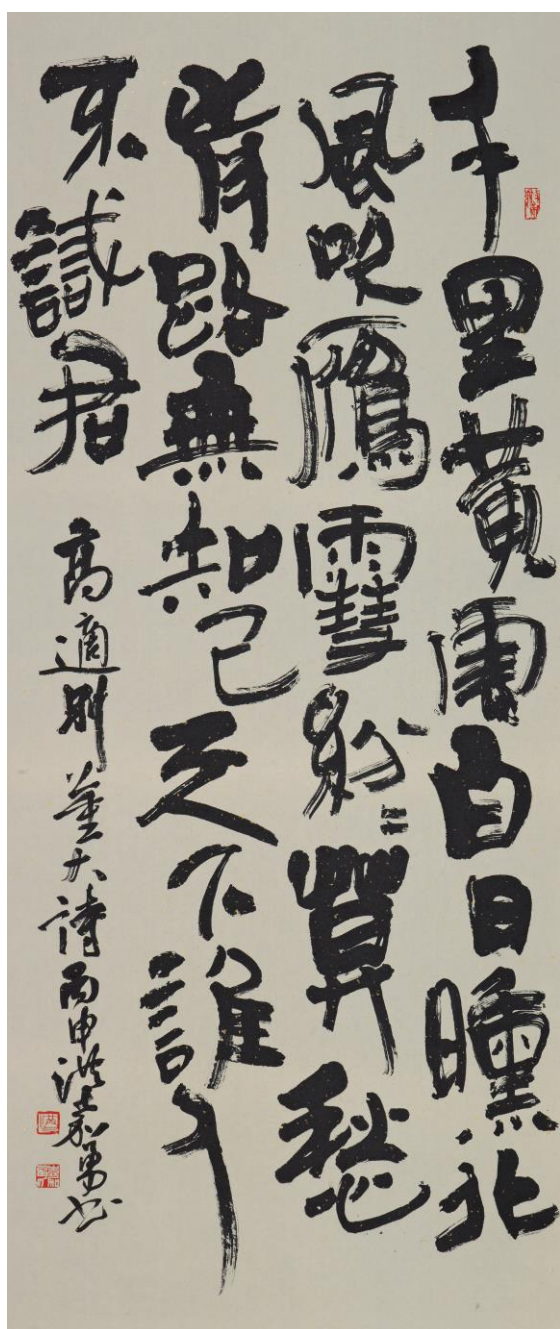 千里黃雲白日曛北
風吹鴈雪紛〻莫愁
前路無知己天下誰人
不識君
高適別董大詩丙申洪嘉勇书